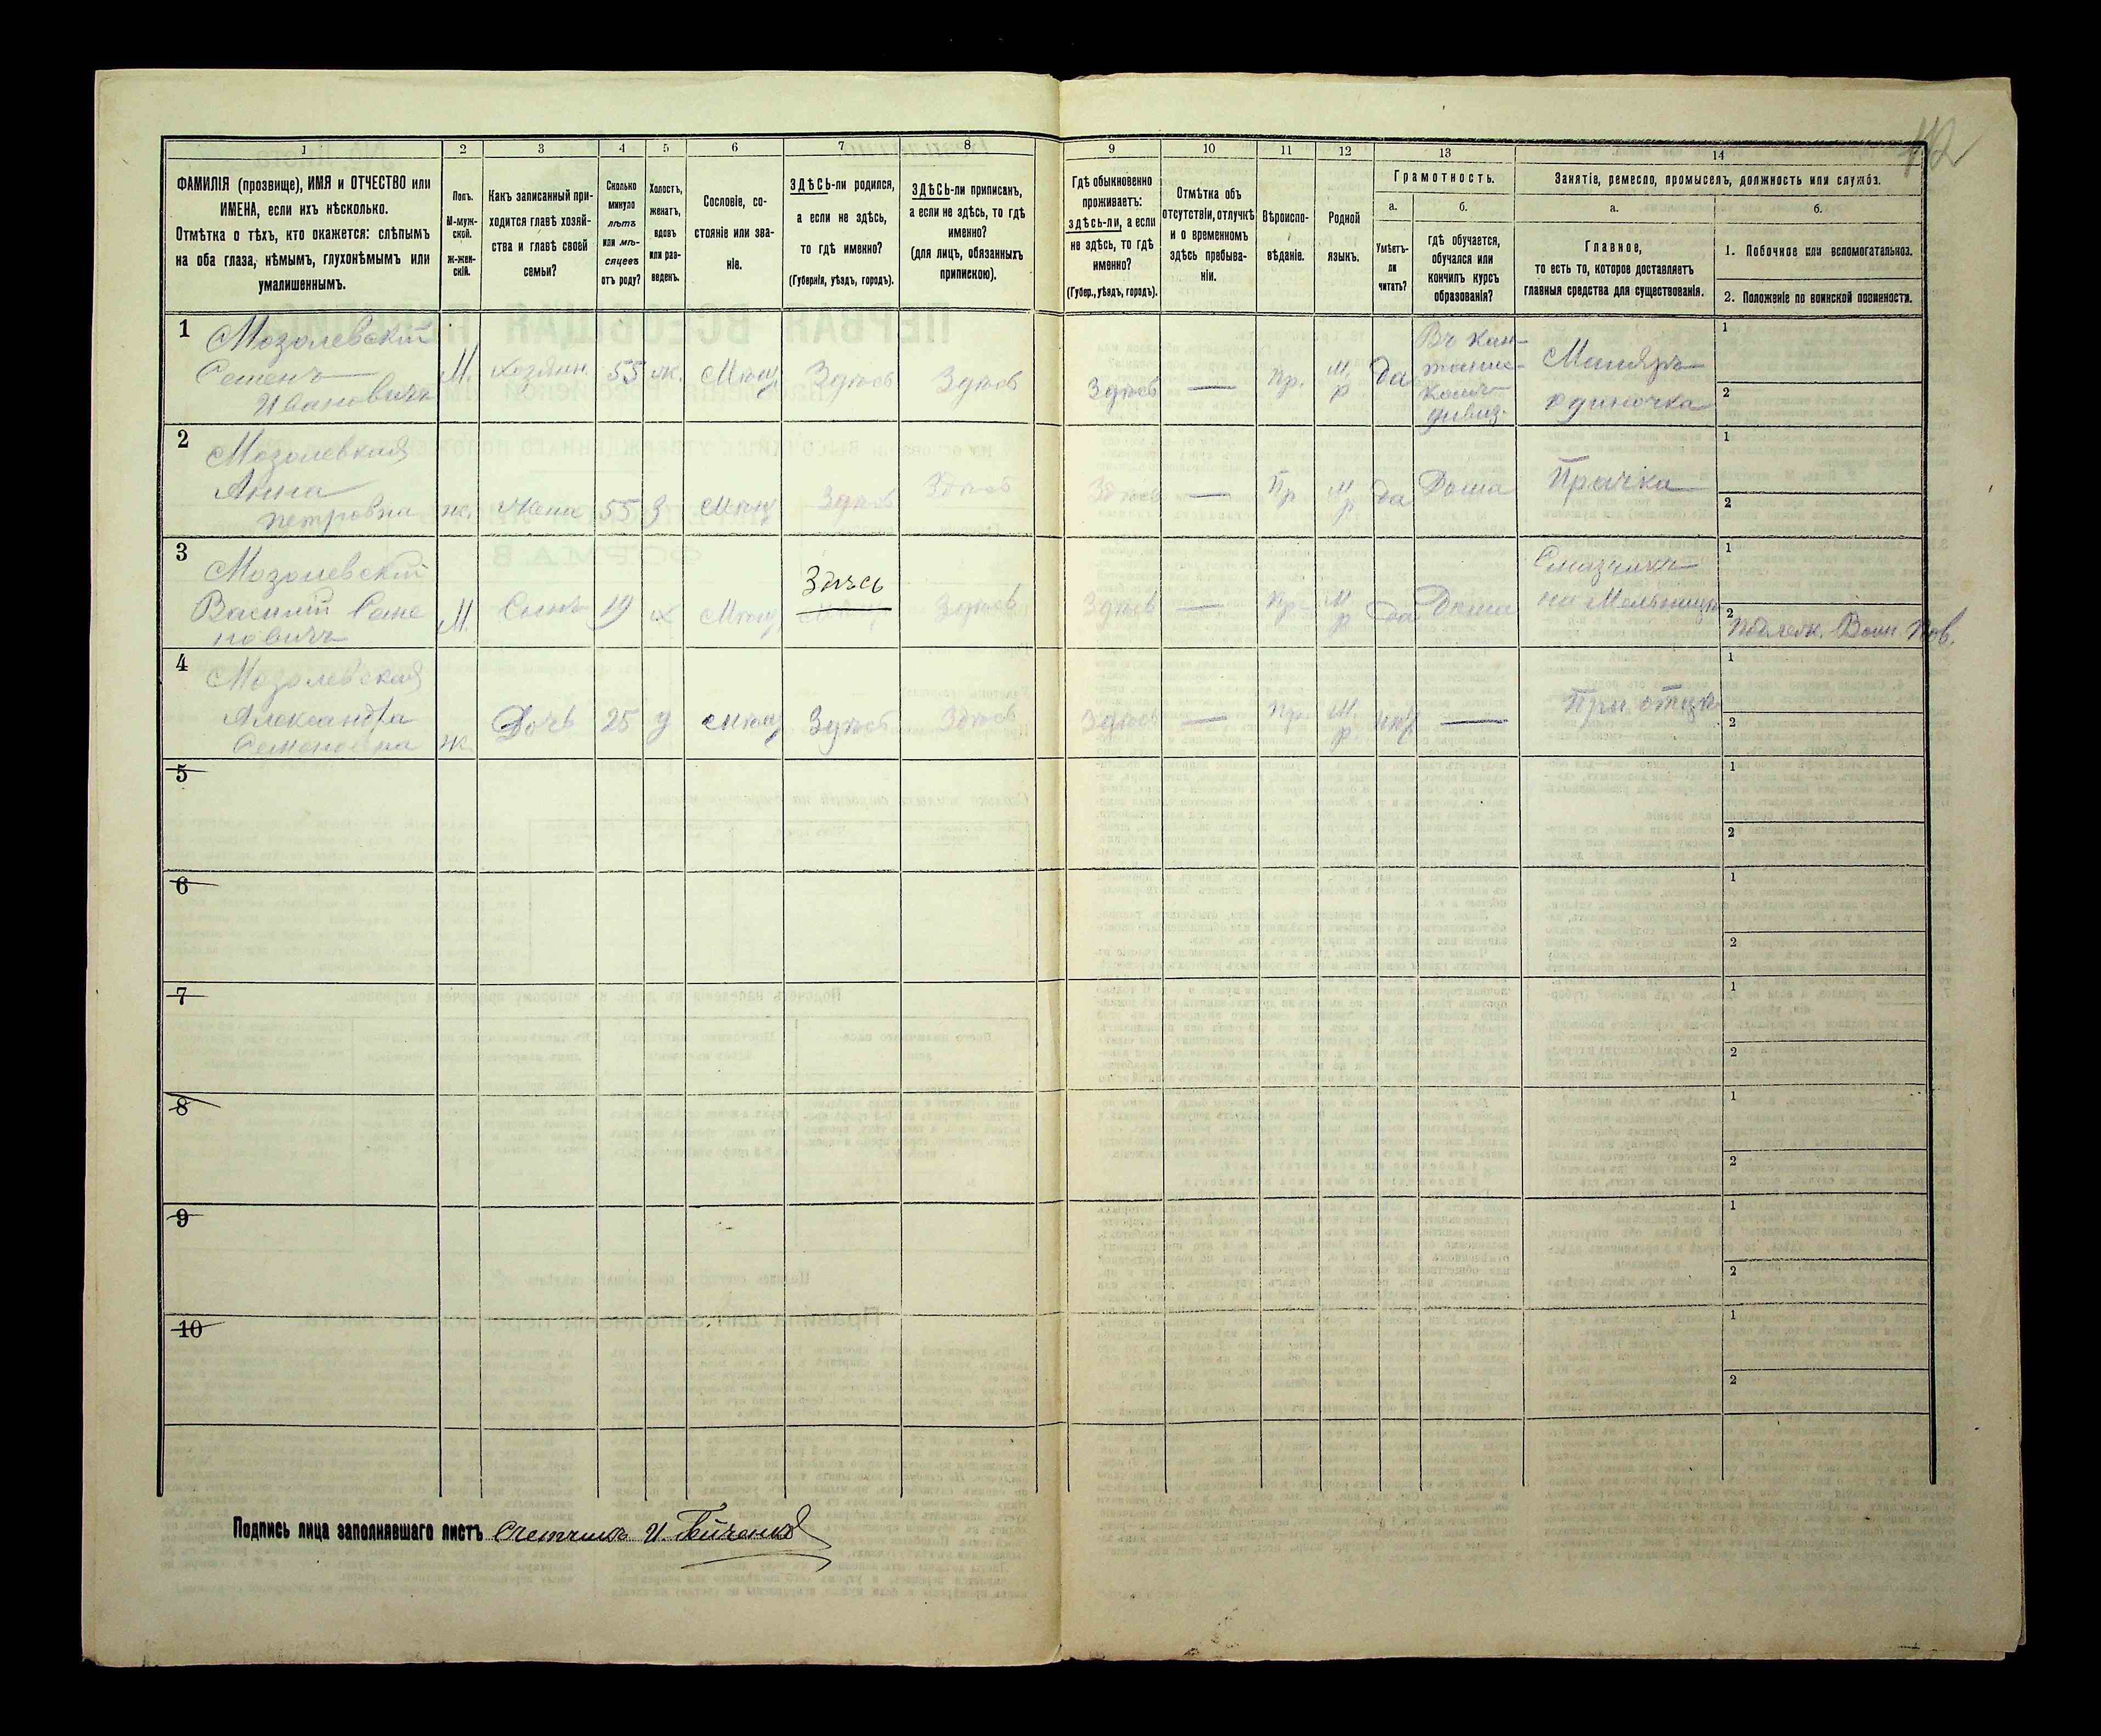 1
2
3
4
5
6
7
8
9
10
11
12
13
14
42
ФАМИЛІЯ (прозвище), ИМЯ и ОТЧЕСТВО или
ИМЕНА, если ихъ нѣсколько.
Отмѣтка о тѣхъ, кто окажется: слѣпымъ
на оба глаза, нѣмымъ, глухонѣмымъ или
умалишеннымъ.
Полъ.
М-муж-
ской.
ж-жен-
скій.
Какъ записанный при-
ходится главѣ хозяй-
ства и главѣ своей
семьи?
Сколько
минуло
лѣтъ
или мѣ-
сяцевъ
отъ роду?
Холостъ,
женатъ,
вдовъ
или раз-
веденъ.
Сословіе, со-
стояніе или зва-
ніе.
ЗДѢСЬ-ли родился,
а если не здѣсь,
то гдѣ именно?
(Губернія, уѣздъ, городъ).
ЗДѢСЬ-ли приписанъ,
а если не здѣсь, то гдѣ
именно?
(для лицъ, обязанныхъ
припискою).
Гдѣ обыкновенно
проживаетъ:
здѣсь-ли, а если
не здѣсь, то гдѣ
именно?
(Губер., уѣздъ, городъ).
Отмѣтка объ
отсутствіи, отлучкѣ
и о временномъ
здѣсь пребыва-
ніи.
Вѣроиспо-
вѣданіе.
Родной
языкъ.
Грамотность.
а.
Умѣетъ-
ли
читать?
б.
гдѣ обучается,
обучался или
кончилъ курсъ
образованія?
Занятіе, ремесло, промыселъ, должность или служба.
а.
Главное,
то есть то, которое доставляетъ
главныя средства для существованія.
б.
1. Побочное или вспомогательное.
2. Положеніе по воинской повинности.
1
Мозолевскій
Семенъ
Ивановичъ
М.
хозяин
55
ж.
Мѣщ
Здѣсь
Здѣсь
Здѣсь
—
Пр.
М.
р
да
Въ кан-
Маляръ
одиночка
1
2
2
Мозолевкая
Анна
петровна
ж.
Жена
55
З
Мѣщ
Здѣсь
Здѣсь
Здѣсь
—
Пр
М
р
да
Дома
Прачка
1
2
3
Мозолевскій
Василій Семе
новичъ
М.
Сынъ
19
х
Мѣщ
Здѣсь
Здѣсь
Здѣсь
—
Пр.
М
р
да
Дома
Смазчикъ
на Мельницѣ
1
2
Подлеж. Воин Пов.
4
Мозолевская
Александра
Семеновна
ж.
Дочь
25
д
Мѣщ
Здѣсь
Здѣсь
Здѣсь
—
Пр.
М.
р.
нѣт
—
При отцѣ
1
2
5
1
2
6
1
2
7
1
2
8
1
2
9
1
2
10
1
2
Подпись лица заполнявшаго листъ Счетчикъ И.